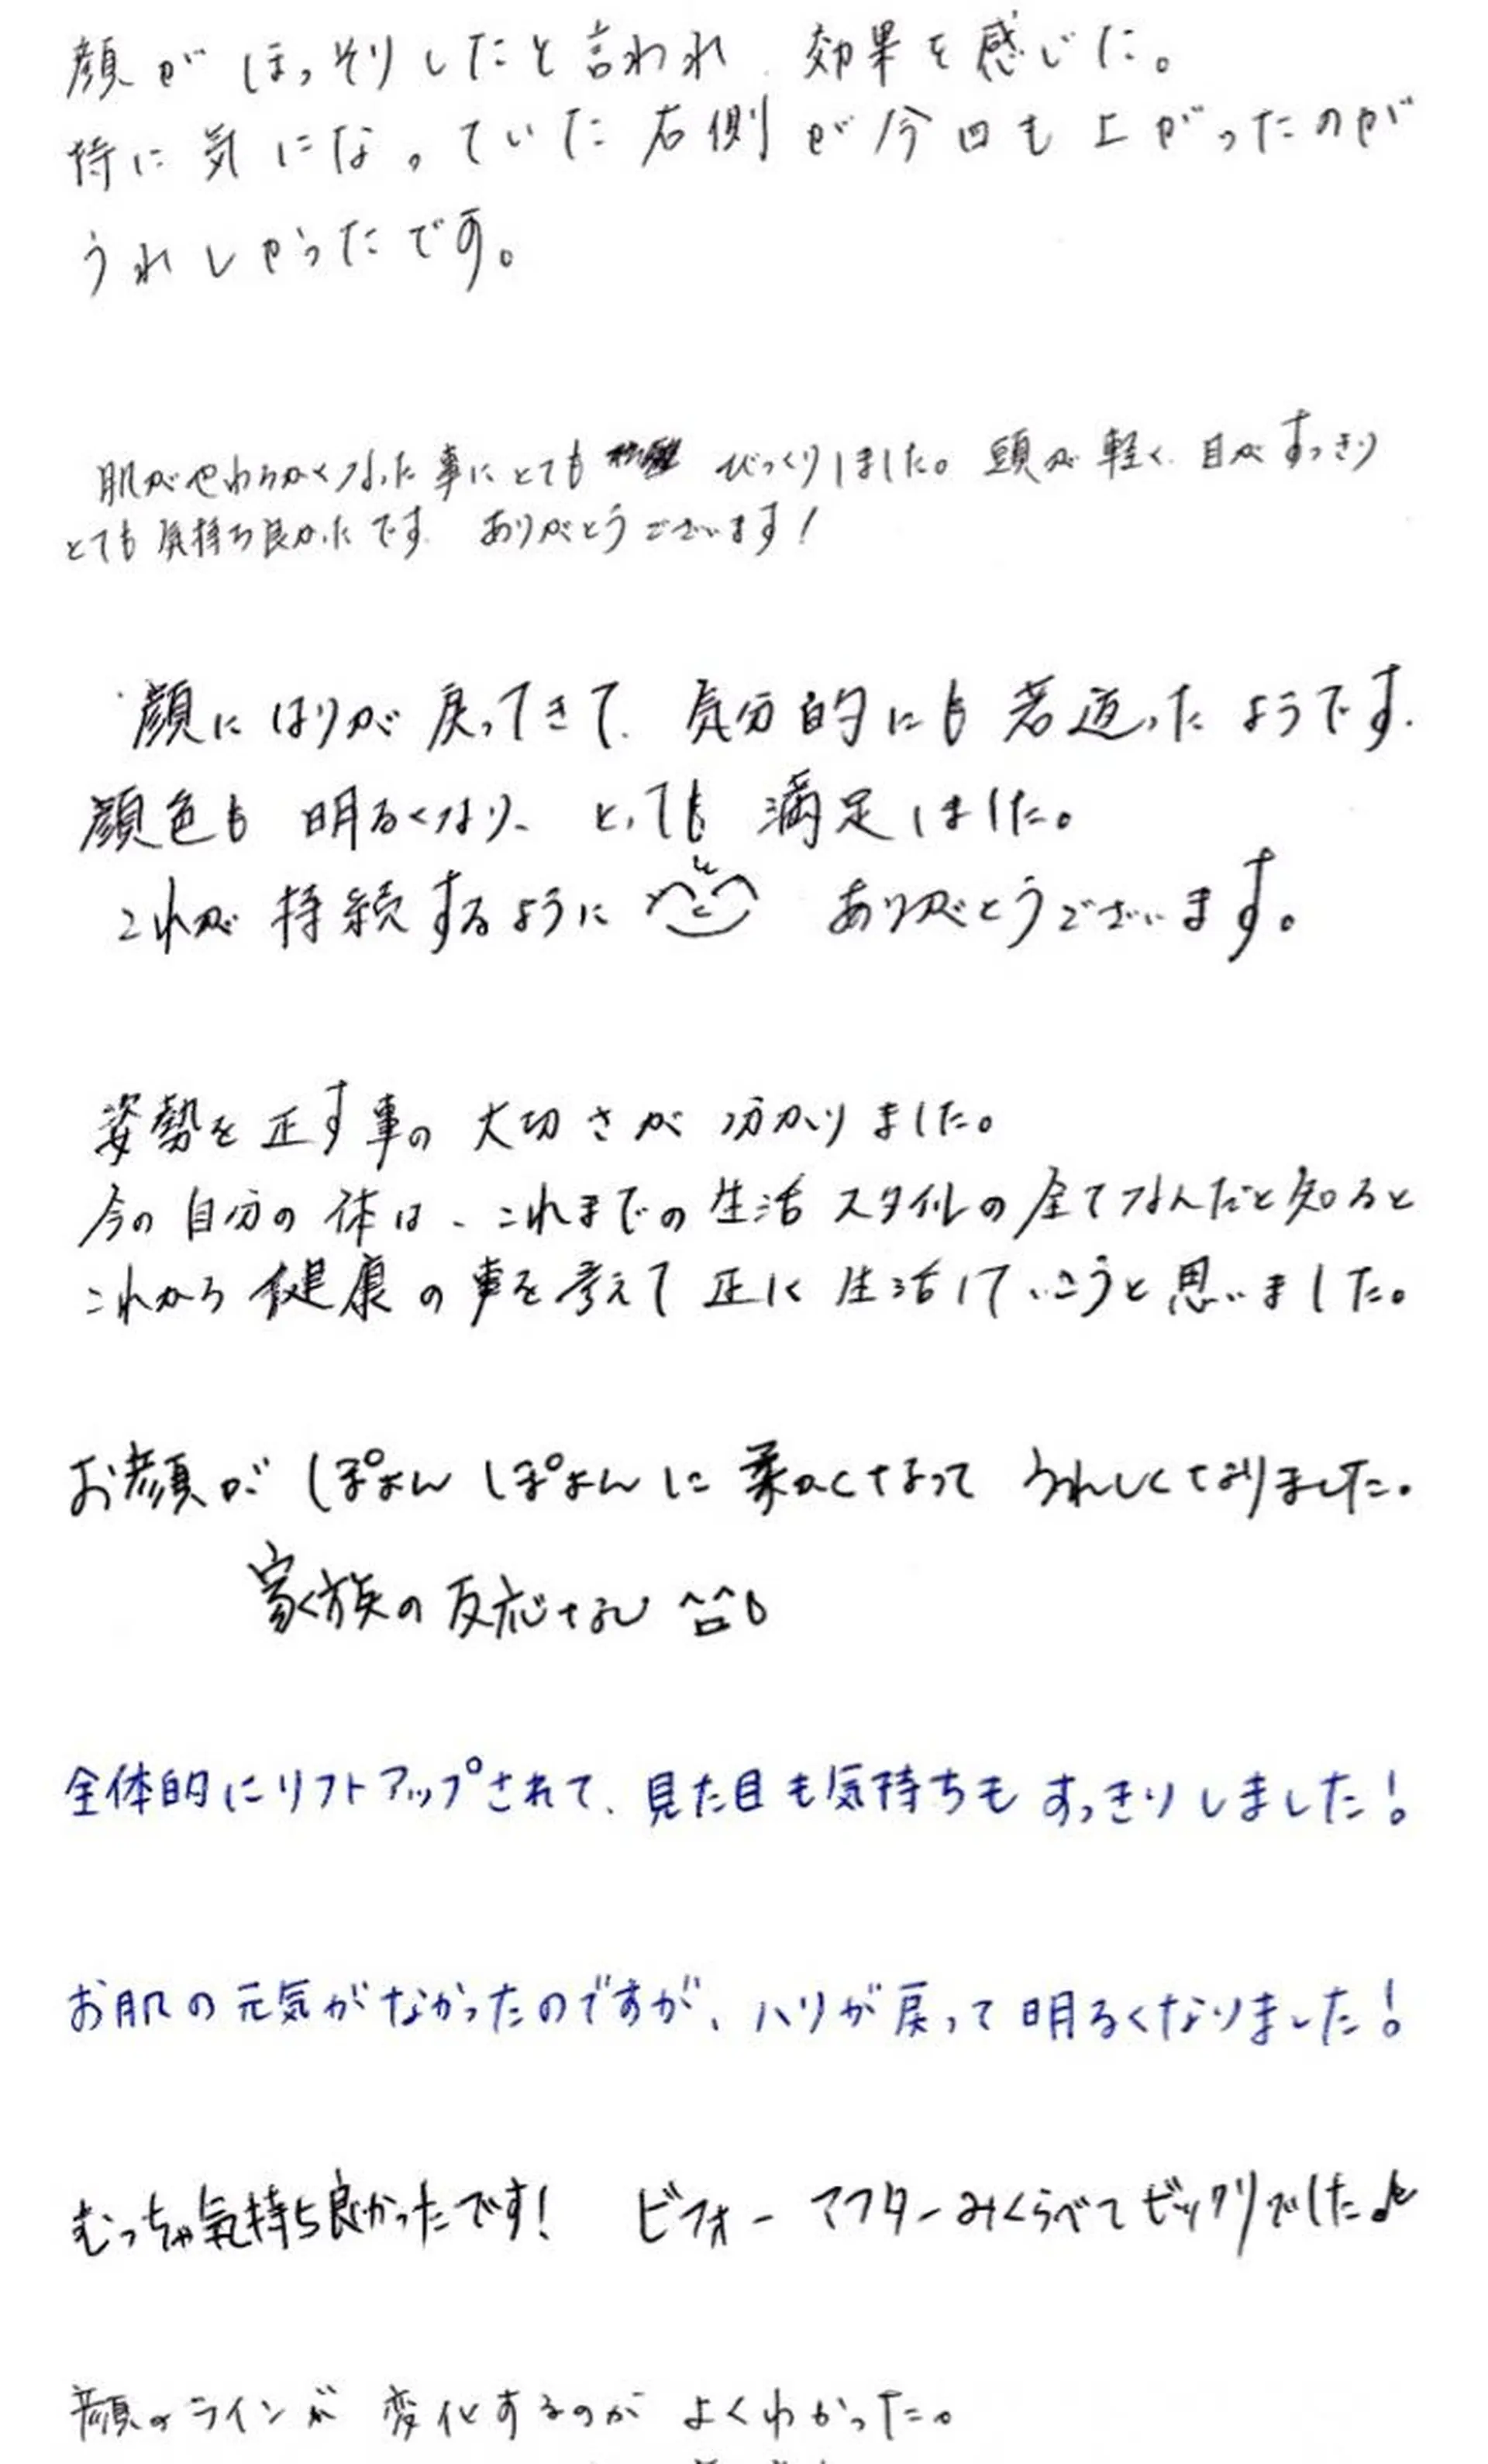 顔がほっそりしたと言われ、効果を感じた。
特に気になっていた右側が今回も上がったのが
うれしかったです。
肌がやわらかくなった事にとても びっくりしました。頭が軽く、目がすっきり
とても気持ち良かったです。ありがとうございます!
顔にはりが戻ってきて、気分的にも若返ったようです。
顔色も明るくなり、とっても満足しました。
これが持続するように ありがとうございます。
姿勢を正す事の大切さが分かりました。
今の自分の体は、これまでの生活スタイルの全てなんだと知ると
これから健康の事を考えて正しく生活していこうと思いました。
お顔がぽよんぽよんに柔かくなって うれしくなりました。
家族の反応なし ^□^;
全体的にリフトアップされて、見た目も気持ちもすっきりしました!
お肌の元気がなかったのですが、ハリが戻って明るくなりました!
むっちゃ気持ち良かったです! ビフォーアフターみくらべてビックリでした♪
顔のラインが変化するのがよくわかった。